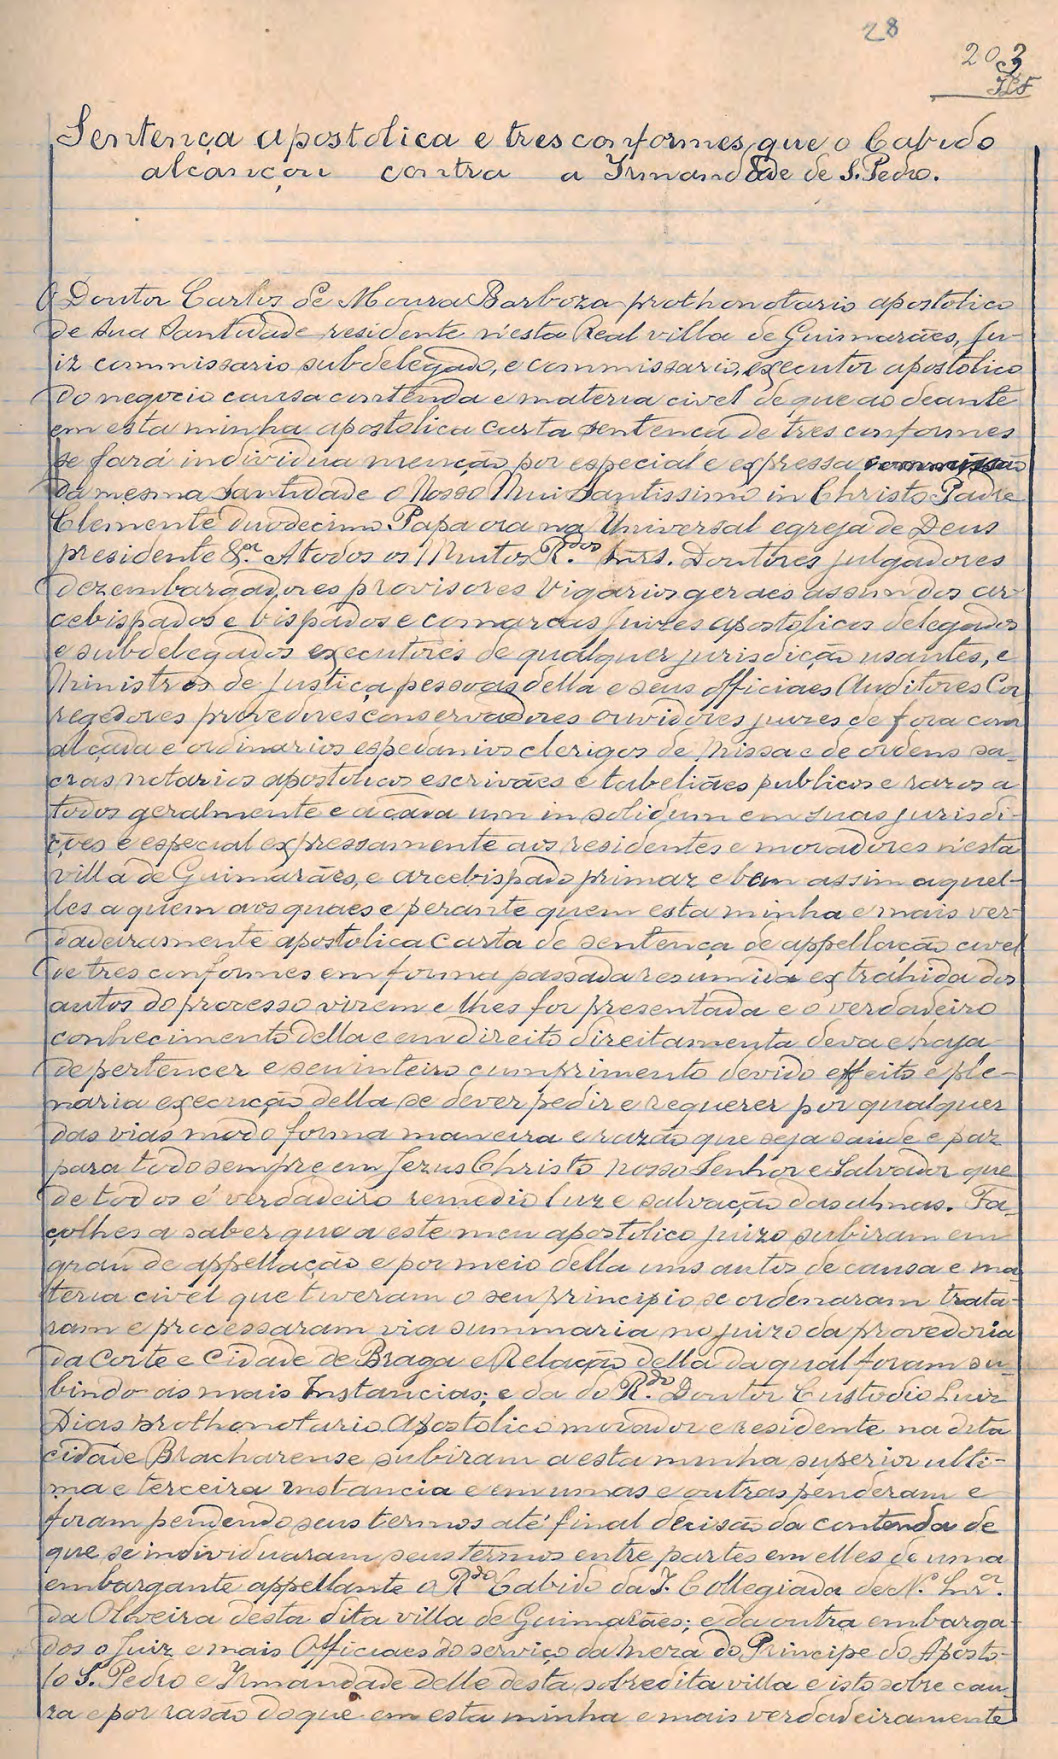 28
203
Sentença apostolica e tres conformes, que o Cabido
alcançou contra a Irmandade de S. Pedro.
O Doutor Carlos de Moura Barboza prothonotario apostolico
de Sua Santidade residente n'esta Real villa de Guimarães, Ju-
iz commissario subdelegado, e commissario, executor apostolico
do negocio causa contenda e materia civel de que ao deante
em esta minha apostolica carta sentença de tres conformes
se fará individua menção por especial e expressa commissão
da mesma Santidade o Nosso Mui Santissimo in Christo Padre
Clemente duodecimo Papa ora na Universal egreja de Deus
presidente &.ª A todos os Muitos R.dos Snrs. Doutores julgadores
dezembargadores provisores Vigarios geraes assim dos ar-
cebispados e bispados e comarcas juizes apostolicos delegados
e subdelegados executores de qualquer jurisdição usantes, e
Ministros de justiça pessoas della e seus officiaes Auditores Cor
regedores provedores conservadores ouvidores juizes de fora com
alçada e ordinarios clerigos de Missa e de ordens sa-
cras notarios apostolicos escrivães e tabeliães publicos e razos a
todos geralmente e a cada um in solidum em suas jurisdi-
ções e especial expressamente aos residentes e moradores n'esta
villa de Guimarães, e arcebispado primaz e bem assim aquel-
les a quem aos quaes e perante quem esta minha e mais ver
dadeiramente apostolica carta de sentença de appellação civel
de tres conformes em forma passada resumida extrahida dos
autos do processo virem e lhes for presentada e o verdadeiro
conhecimento della e em direito direitamenta deva e haja
de pertencer e seu inteiro cumprimento devido effeito e ple-
naria execução della se dever pedir e requerer por qualquer
das vias modo forma maneira e razão que seja saude e paz
para todo sempre em Jezus Christo nosso Senhor e Salvador que
de todos é verdadeiro remedio luz e salvação das almas. Fa-
çolhes a saber que a este meu apostolico juizo subiram em
grau de appellação e por meio della uns autos de causa e ma
teria civel que tiveram o seu principio se ordenaram trata-
ram e processaram via summaria no juizo da provedoria
da Corte e Cidade de Braga e Relação della da qual foram su-
bindo ás mais Instancias; e da do R.do Doutor Custodio Luiz
Dias prothonotario Apostolico morador e residente na dita
cidade Bracharense subiram a esta minha superior ulti-
ma e terceira instancia e em umas e outras penderam e
foram pendendo seus termos até final decisão da contenda de
que se individuaram seus termos entre partes em elles de uma
embargante appellante o R.do Cabido da I. Collegiada de N. Snr.ª
da Oliveira desta dita villa de Guimarães; e da outra embarga-
dos o Juiz e mais Officiaes do serviço da Meza do Principe do Aposto-
lo S. Pedro e Irmandade delle desta sobredita villa e isto sobre cau-
za e por rasão do que em esta minha e mais verdadeiramente